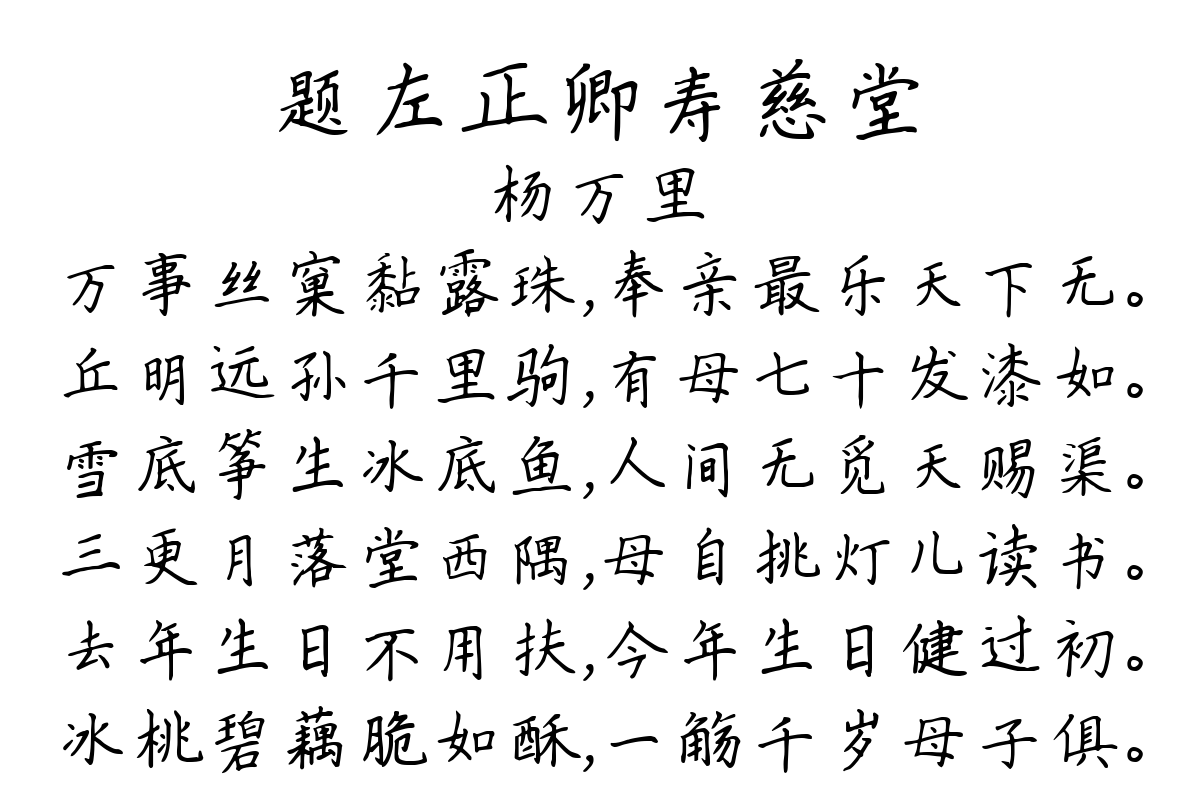 题左正卿寿慈堂
杨万里
万事丝窠黏露珠,奉亲最乐天下无。
丘明远孙千里驹,有母七十发漆如。
雪底筝生冰底鱼,人间无觅天赐渠。
三更月落堂西隅,母自挑灯儿读书。
去年生日不用扶,今年生日健过初。
冰桃碧藕脆如酥,一觞千岁母子俱。